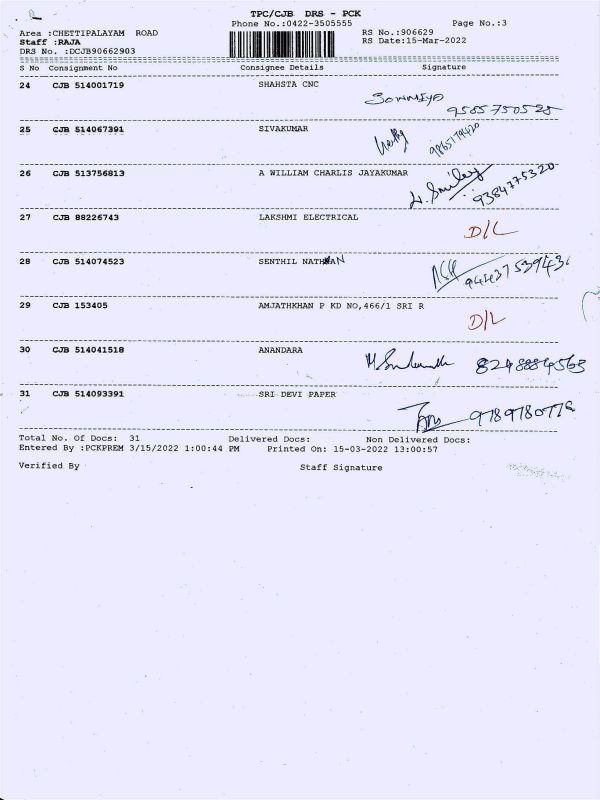 TPC/CJB DRS - PCK
Phone No.:0422-3505555 Page No.:3
Area :CHETTIPALAYAM ROAD RS No.:906629
Staff :RAJA RS Date:15-Mar-2022
DRS No. :DCJB90662903
S No Consignment No Consignee Details Signature
24 CJB 514001719 SHAHSTA CNC
SOWMIYA
9585750525
25 CJB 514067391 SIVAKUMAR
9865779420
26 CJB 513756813 A WILLIAM CHARLIS JAYAKUMAR
Smiley 9384775320
27 CJB 88226743 LAKSHMI ELECTRICAL
D/L
28 CJB 514074523 SENTHIL NATHAN
29 CJB 153405 AMJATHKHAN P KD NO,466/1 SRI R
D/L
30 CJB 514041518 ANANDARA
8248884563
31 CJB 514093391 SRI DEVI PAPER
Total No. Of Docs: 31 Delivered Docs: Non Delivered Docs:
Entered By :PCKPREM 3/15/2022 1:00:44 PM Printed On: 15-03-2022 13:00:57
Verified By Staff Signature